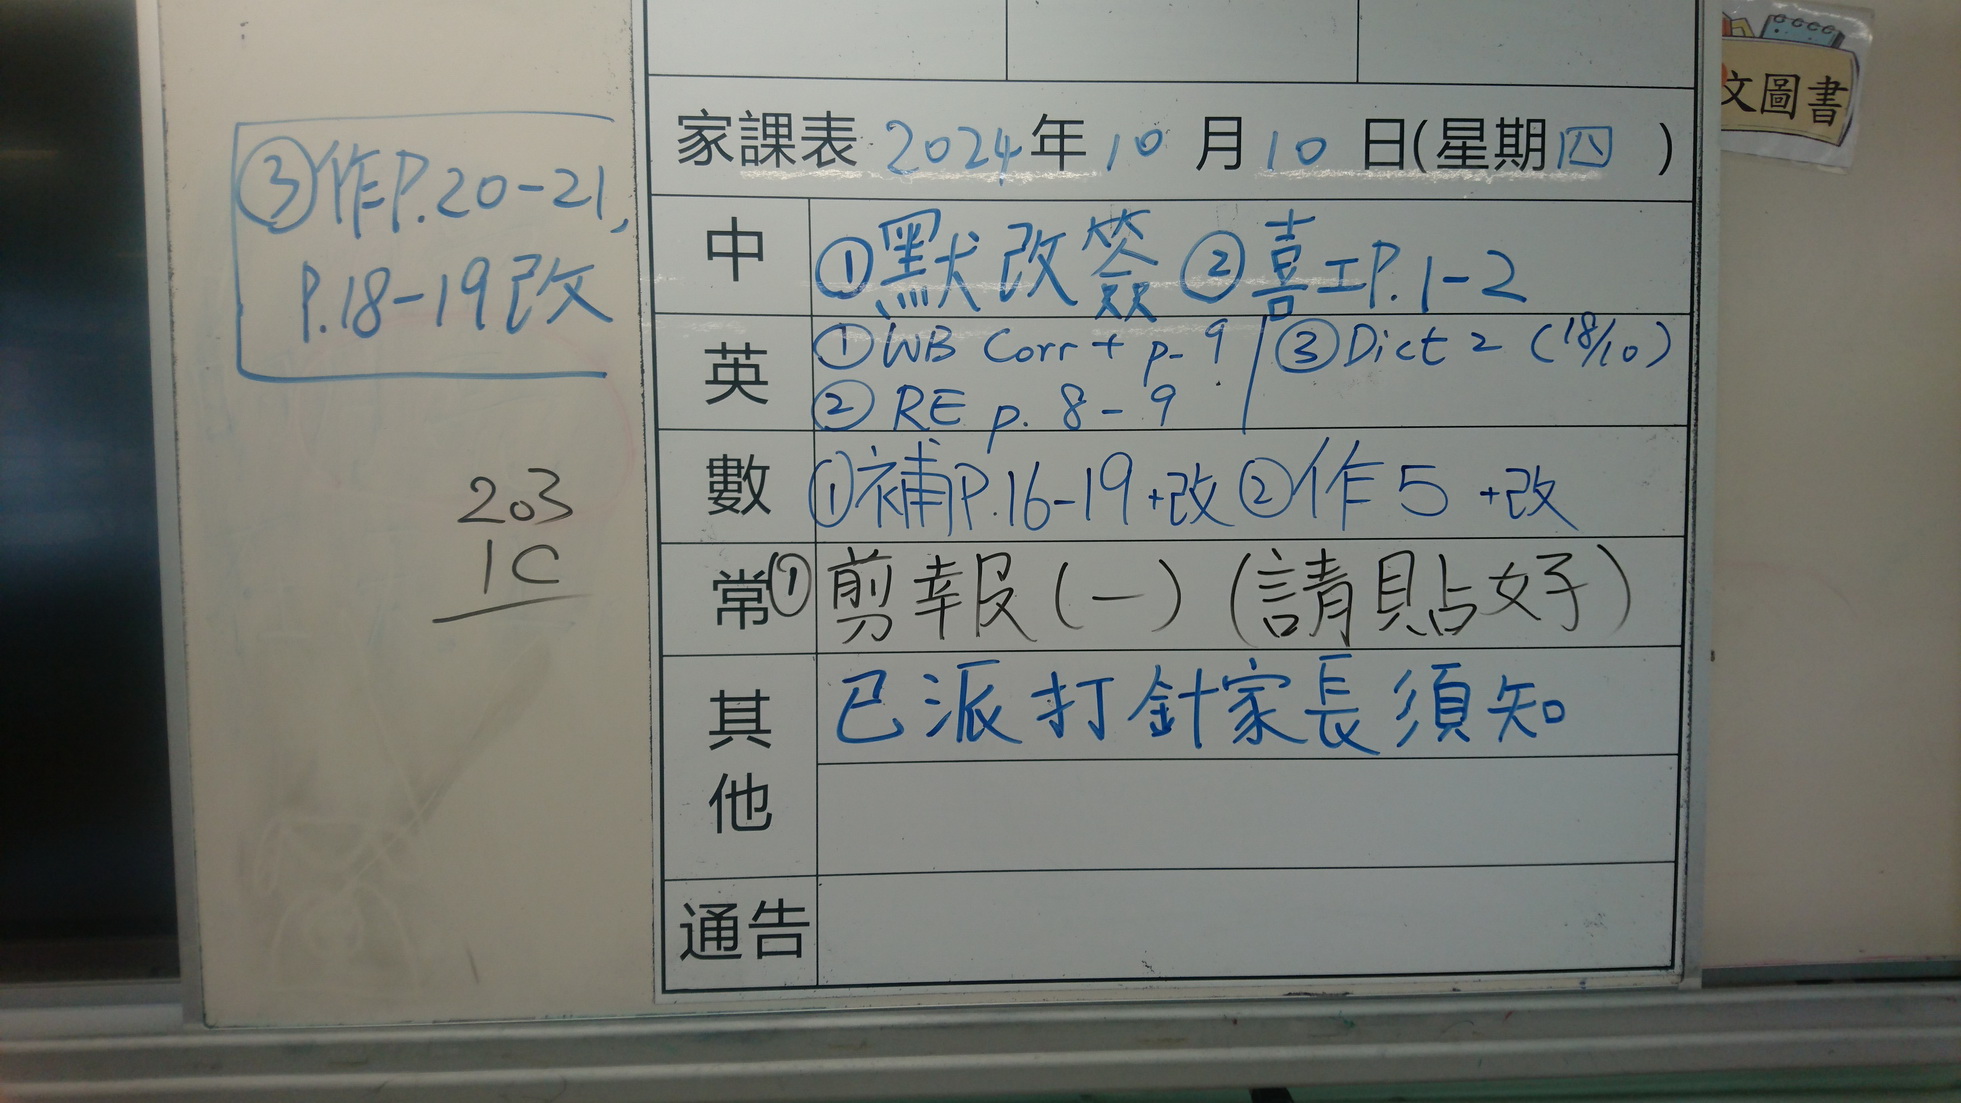 家課表 2024年10月10日(星期四)
中 ①默改簽 ②喜工P.1-2
③作P.20-21,
P.18-19改
英 ①WB Corr + p.9
② RE p. 8-9
③Dict 2 (18/10)
數 ①補P.16-19+改 ②作5 +改
常 ①剪報(一)(請貼好)
其他 已派打針家長須知
通告
203
1C
文圖書